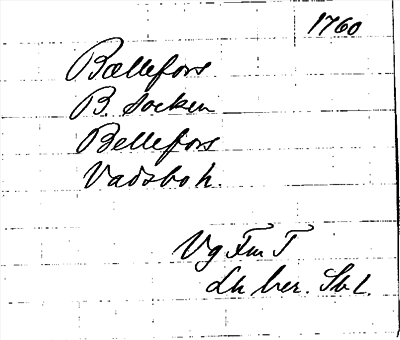 1760
Bællefors
B. socken
Bellefors
Vadsbo h.
Vg Fm T
Lh ber.